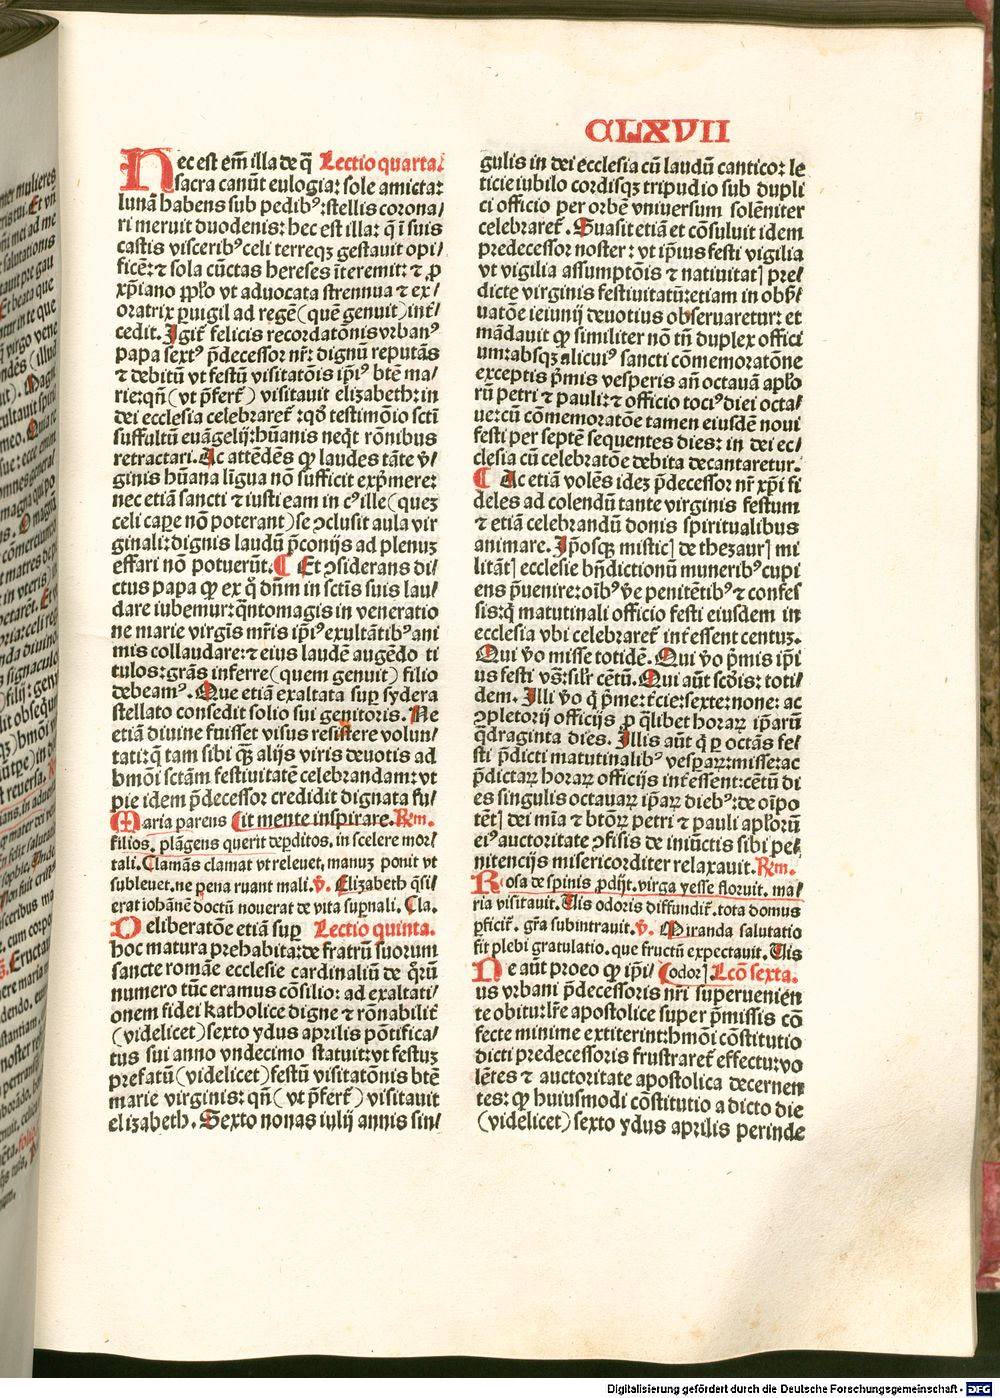 CLXVII
Nec est em̄ illa de q̄ Lectio quarta.
sacra canūt eulogia: sole amicta:
lunā habens sub pedibꝰ: stellis corona/
ri meruit duodenis: hec est illa: q̄ ī suis
castis visceribꝰ celi terreqꝫ gestauit opi/
ficē: ⁊ sola cūctas hereses īteremit: ⁊ ꝓ
xp̄iano ꝓpl̄o vt aduocata strennua ⁊ ex/
oratrix ꝑuigil ad regē (quē genuit) int̄/
cedit. Igit̄ felicis recordatōnis vrbanꝰ
papa sextꝰ p̄decessor nr̄: dignū reputās
⁊ debitū vt festū visitatōis ip̄iꝰ btē ma/
rie: qn̄ (vt p̄fert̄) visitauit elizabeth: in
dei ecclesia celebraret̄: qd̄ testimōio sctī
suffultū euāgelij: hūanis neq̄t rōnibus
retractari. Ac attēdēs ꝙ laudes tāte v̄/
ginis hūana līgua nō sufficit exp̄mere:
nec etiā sancti ⁊ iusti eam in cꝰ ille (queꝫ
celi caꝑe nō poterant) se ꝯclusit aula vir
ginali: dignis laudū p̄conijs ad plenuꝫ
effari nō potuerūt. ¶ Et ꝯsiderans di/
ctus papa ꝙ ex q̄ dn̄m in sctīs suis lau/
dare iubemur: q̄ntomagis in veneratio
ne marie virgīs mr̄is ip̄iꝰ exultātibꝰ ani
mis collaudare: ⁊ eius laudē augēdo ti
tulos: grās inferre (quem genuit) filio
debeamꝰ. Que etiā exaltata suꝑ sydera
stellato consedit solio sui genitoris. Ne
etiā diuine fuisset visus resistere volun/
tati: q̄ tam sibi q̄ꝫ alijs viris deuotis ad
hmōi sctām festiuitatē celebrandam: vt
pie idem p̄decessor credidit dignata fu/
Maria parens (it mente inspirare. Rm̄.
filios, plāgens querit deꝑditos, in scelere mor/
tali. Clamās clamat vt releuet, manuꝫ ponit vt
subleuet. ne pena ruant mali. v̄. Elizabeth q̄si/
erat iohānē doctū nouerat de vita suꝑnali. Cla.
Deliberatōne etiā suꝑ Lectio quinta.
hoc matura prehabita: de fratrū suorum
sancte romāe ecclesie cardinaliū de q̄rū
numero tūc eramus cōsilio: ad exaltati/
onem fidei katholice digne ⁊ rōnabilit̄
(videlicet) sexto ydus aprilis pōtifica/
tus sui anno vndecimo statuit: vt festuꝫ
prefatū (videlicet) festū visitatōnis btē
marie virginis: qn̄ (vt p̄fert̄) visitauit
elizabeth. Sexto nonas iulij annis sin/
gulis in dei ecclesia cū laudū cantico: le
ticie iubilo cordisqꝫ tripudio sub dupli
ci officio per orbē vniuersum solēniter
celebraret̄. Suasit etiā et cōsuluit idem
predecessor noster: vt ip̄ius festi vigilia
vt vigilia assumptōis ⁊ natiuitatꝭ pre/
dicte virginis festiuitatū: etiam in obẜ/
uatōe ieiunij deuotius obseruaretur: et
mādauit ꝙ similiter nō tn̄ duplex offici
um: absqꝫ alicuiꝰ sancti cōmemoratōne
exceptis p̄mis vesperis an̄ octauā apl̄o
rū petri ⁊ pauli: ⁊ officio tociꝰ diei octa/
ue: cū cōmemoratōe tamen eiusdē noui
festi per septē sequentes dies: in dei ec/
clesia cū celebratōe debita decantaretur.
¶ Ac etiā volēs ideꝫ p̄decessor nr̄ xp̄i fi
deles ad colendū tante virginis festum
⁊ etiā celebrandū donis spiritualibus
animare. Ip̄osqꝫ misticꝭ de thezaurꝭ mi
litātꝭ ecclesie bn̄dictionū muneribꝰ cupi
ens p̄uenire: oībꝰ v̄e penitētibꝰ ⁊ confes
sis: q̄ matutinali officio festi eiusdem in
ecclesia vbi celebraret̄ int̄essent centuꝫ.
Qui v̄o misse totidē. Qui v̄o p̄mis ip̄i
us festi vs̄: sil̄r cētū. Qui aūt scd̄is: toti/
dem. Illi v̄o q̄ p̄me: t̄cie: sexte: none: ac
ꝯpletorij officijs ꝓ q̄libet horaꝝ ip̄arū
q̄draginta dies. Illis aūt q̄ ꝑ octās fe/
sti p̄dicti matutinalibꝰ vesꝑaꝝ: misse: ac
p̄dictaꝝ horaꝝ officijs int̄essent: cētū di
es singulis octauaꝝ ip̄aꝝ diebꝰ: de oīpo
tētꝭ dei mīa ⁊ btōꝝ petri ⁊ pauli apl̄orū
eiꝰ auctoritate ꝯfisis de iniūctis sibi pe/
nitencijs misericorditer relaxauit. Rm̄.
Rosa de spinis ꝓdijt. virga yesse floruit. ma/
ria visitauit. Uīs odoris diffundit̄. tota domus
ꝑficit̄. grā subintrauit. v̄. Miranda salutatio
fit plebi gratulatio. que fructū expectauit. Uīs
Ne aūt proeo ꝙ ip̄i/ (odorꝭ. Lcō sexta.
us vrbani p̄decessoris nr̄i superuenien
te obitu: lr̄e apostolice super p̄missis cō
fecte minime extiterint: hmōi cōstitutio
dicti predecessoris frustraret̄ effectu: vo
lētes ⁊ auctoritate apostolica decernen
tes: ꝙ huiusmodi cōstitutio a dicto die
(videlicet) sexto ydus aprilis perinde
Digitalisierung gefördert durch die Deutsche Forschungsgemeinschaft - DFG